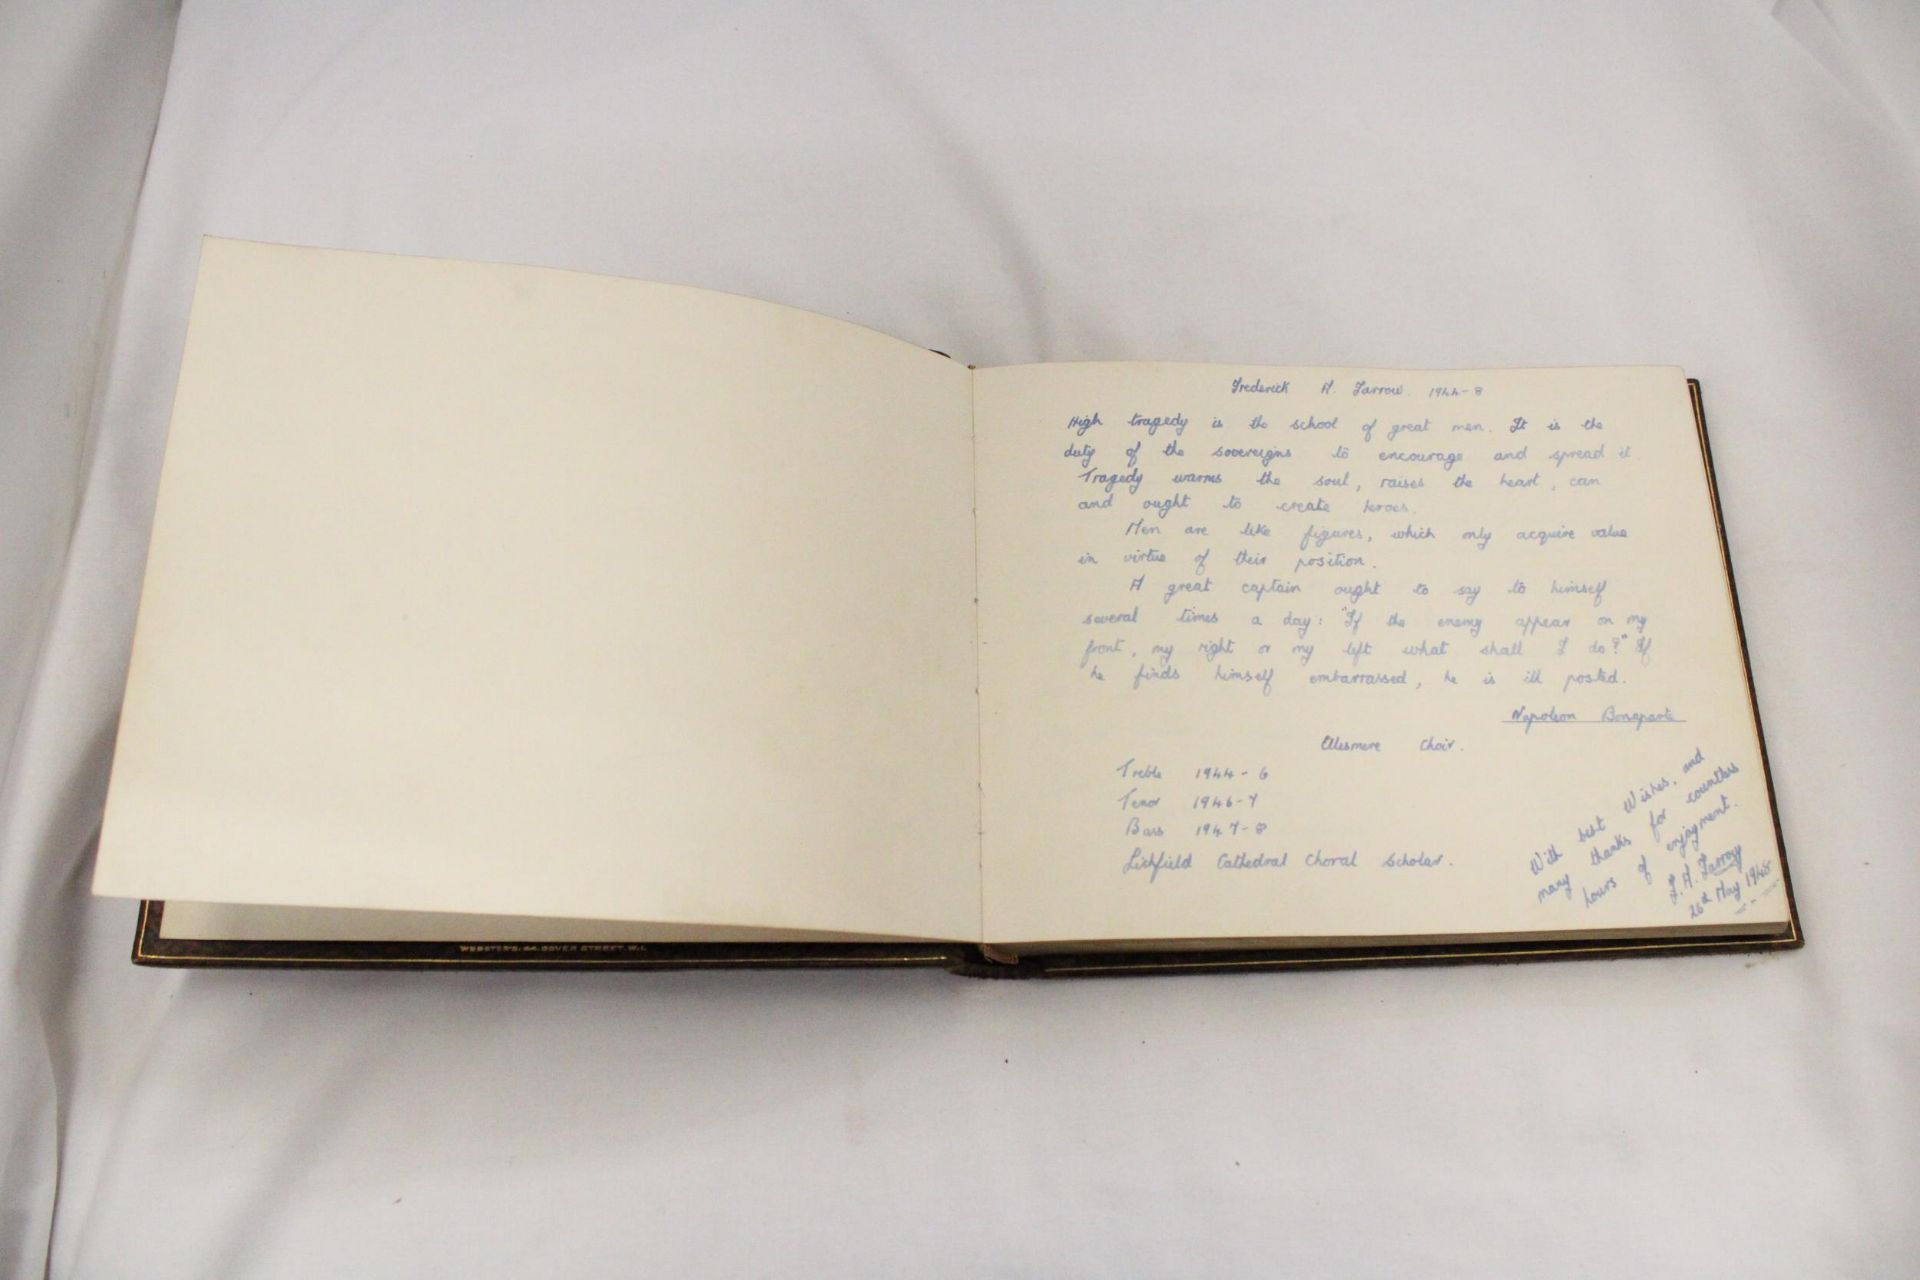 Frederick A. Farrow. 1944-8
High tragedy is the school of great men. It is the
duty of the sovereigns to encourage and spread it.
Tragedy warms the soul, raises the heart, can
and ought to create heroes.
Men are like figures, which only acquire value
in virtue of their position.
A great captain ought to say to himself
several times a day: "If the enemy appear on my
front, my right or my left what shall I do?" If
he finds himself embarrassed, he is ill posted.
Napoleon Bonaparte
Ellesmere Choir.
Treble 1944-6
Tenor 1946-7
Bass 1947-8
Lichfield Cathedral Choral Scholar.
With best Wishes, and
many thanks for countless
hours of enjoyment.
F. A. Farrow
26th May 1948
WEBSTER'S. 44. DOVER STREET. W.1.